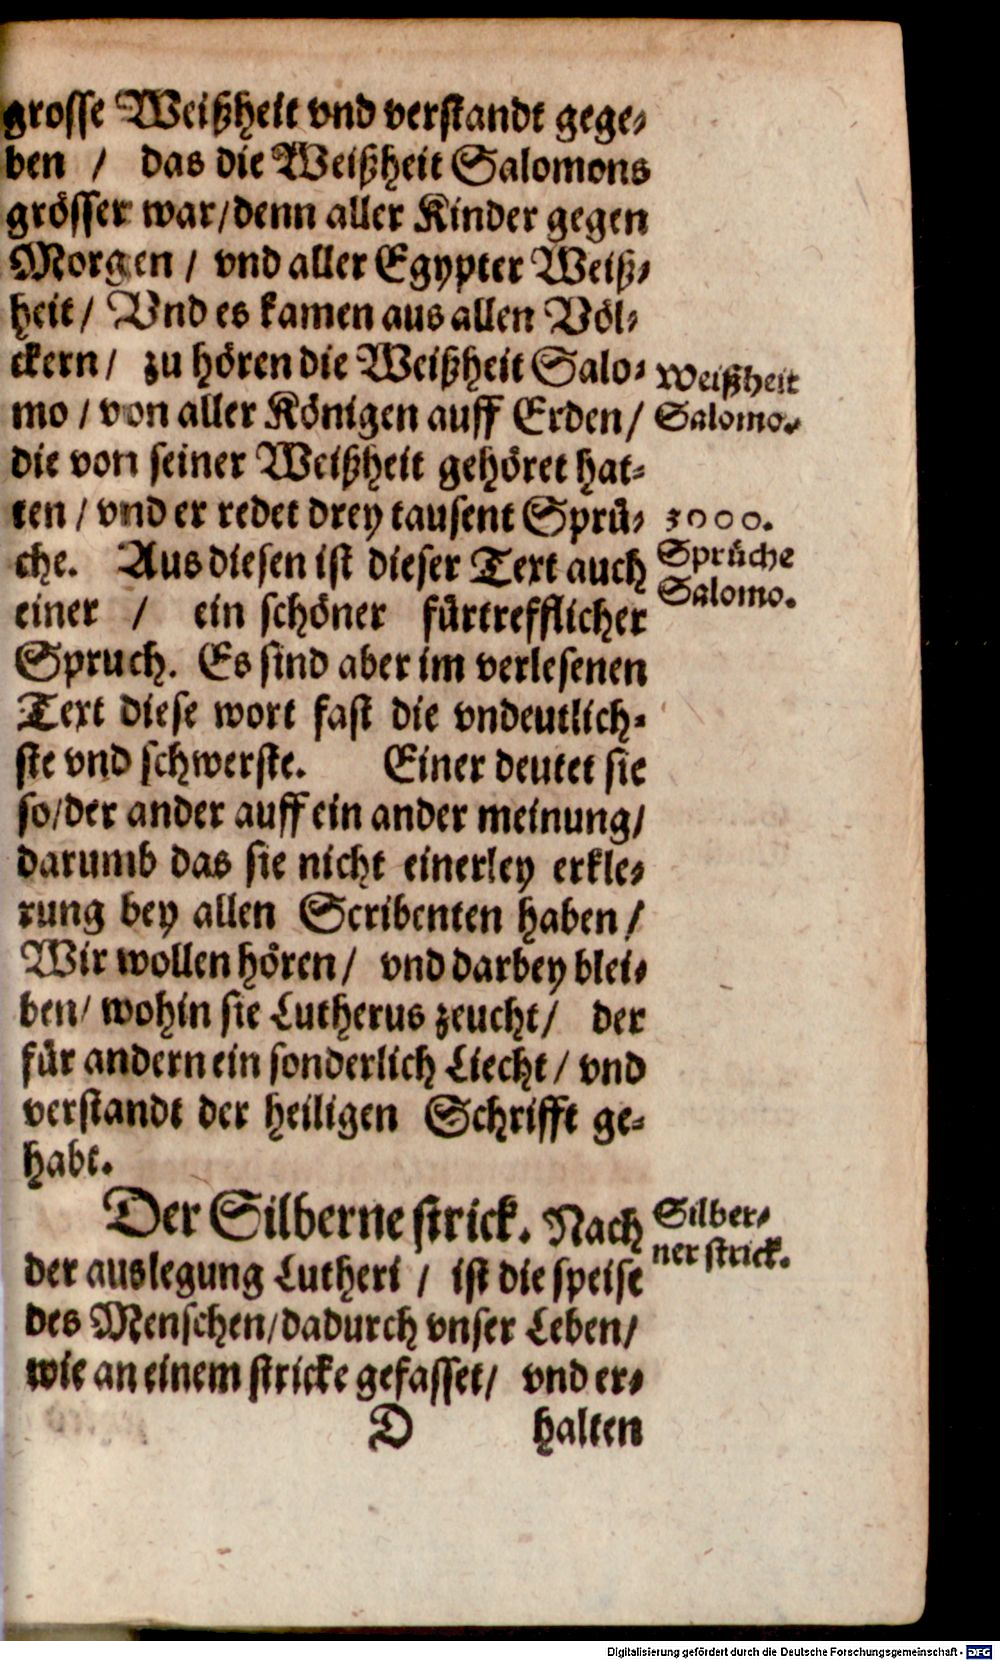 grosse Weißheit vnd verstandt gege-
ben / das die Weißheit Salomons
grösser war/denn aller Kinder gegen
Morgen / vnd aller Egypter Weiß-
heit/ Vnd es kamen aus allen Völ-
ckern/ zu hören die Weißheit Salo-
mo / von aller Königen auff Erden/
die von seiner Weißheit gehöret hat-
ten / vnd er redet drey tausent Sprü-
che. Aus diesen ist dieser Text auch
einer / ein schöner fürtrefflicher
Spruch. Es sind aber im verlesenen
Text diese wort fast die vndeutlich-
ste vnd schwerste. Einer deutet sie
so/der ander auff ein ander meinung/
darumb das sie nicht einerley erkle-
rung bey allen Scribenten haben/
Wir wollen hören/ vnd darbey blei-
ben/ wohin sie Lutherus zeucht/ der
für andern ein sonderlich Liecht/ vnd
verstandt der heiligen Schrifft ge-
habt.
Der Silberne strick. Nach
der auslegung Lutheri / ist die speise
des Menschen/dadurch vnser Leben/
wie an einem stricke gefasset/ vnd er-
D halten
Weißheit
Salomo.
3000.
Sprüche
Salomo.
Silber-
ner strick.
Digitalisierung gefördert durch die Deutsche Forschungsgemeinschaft - DFG